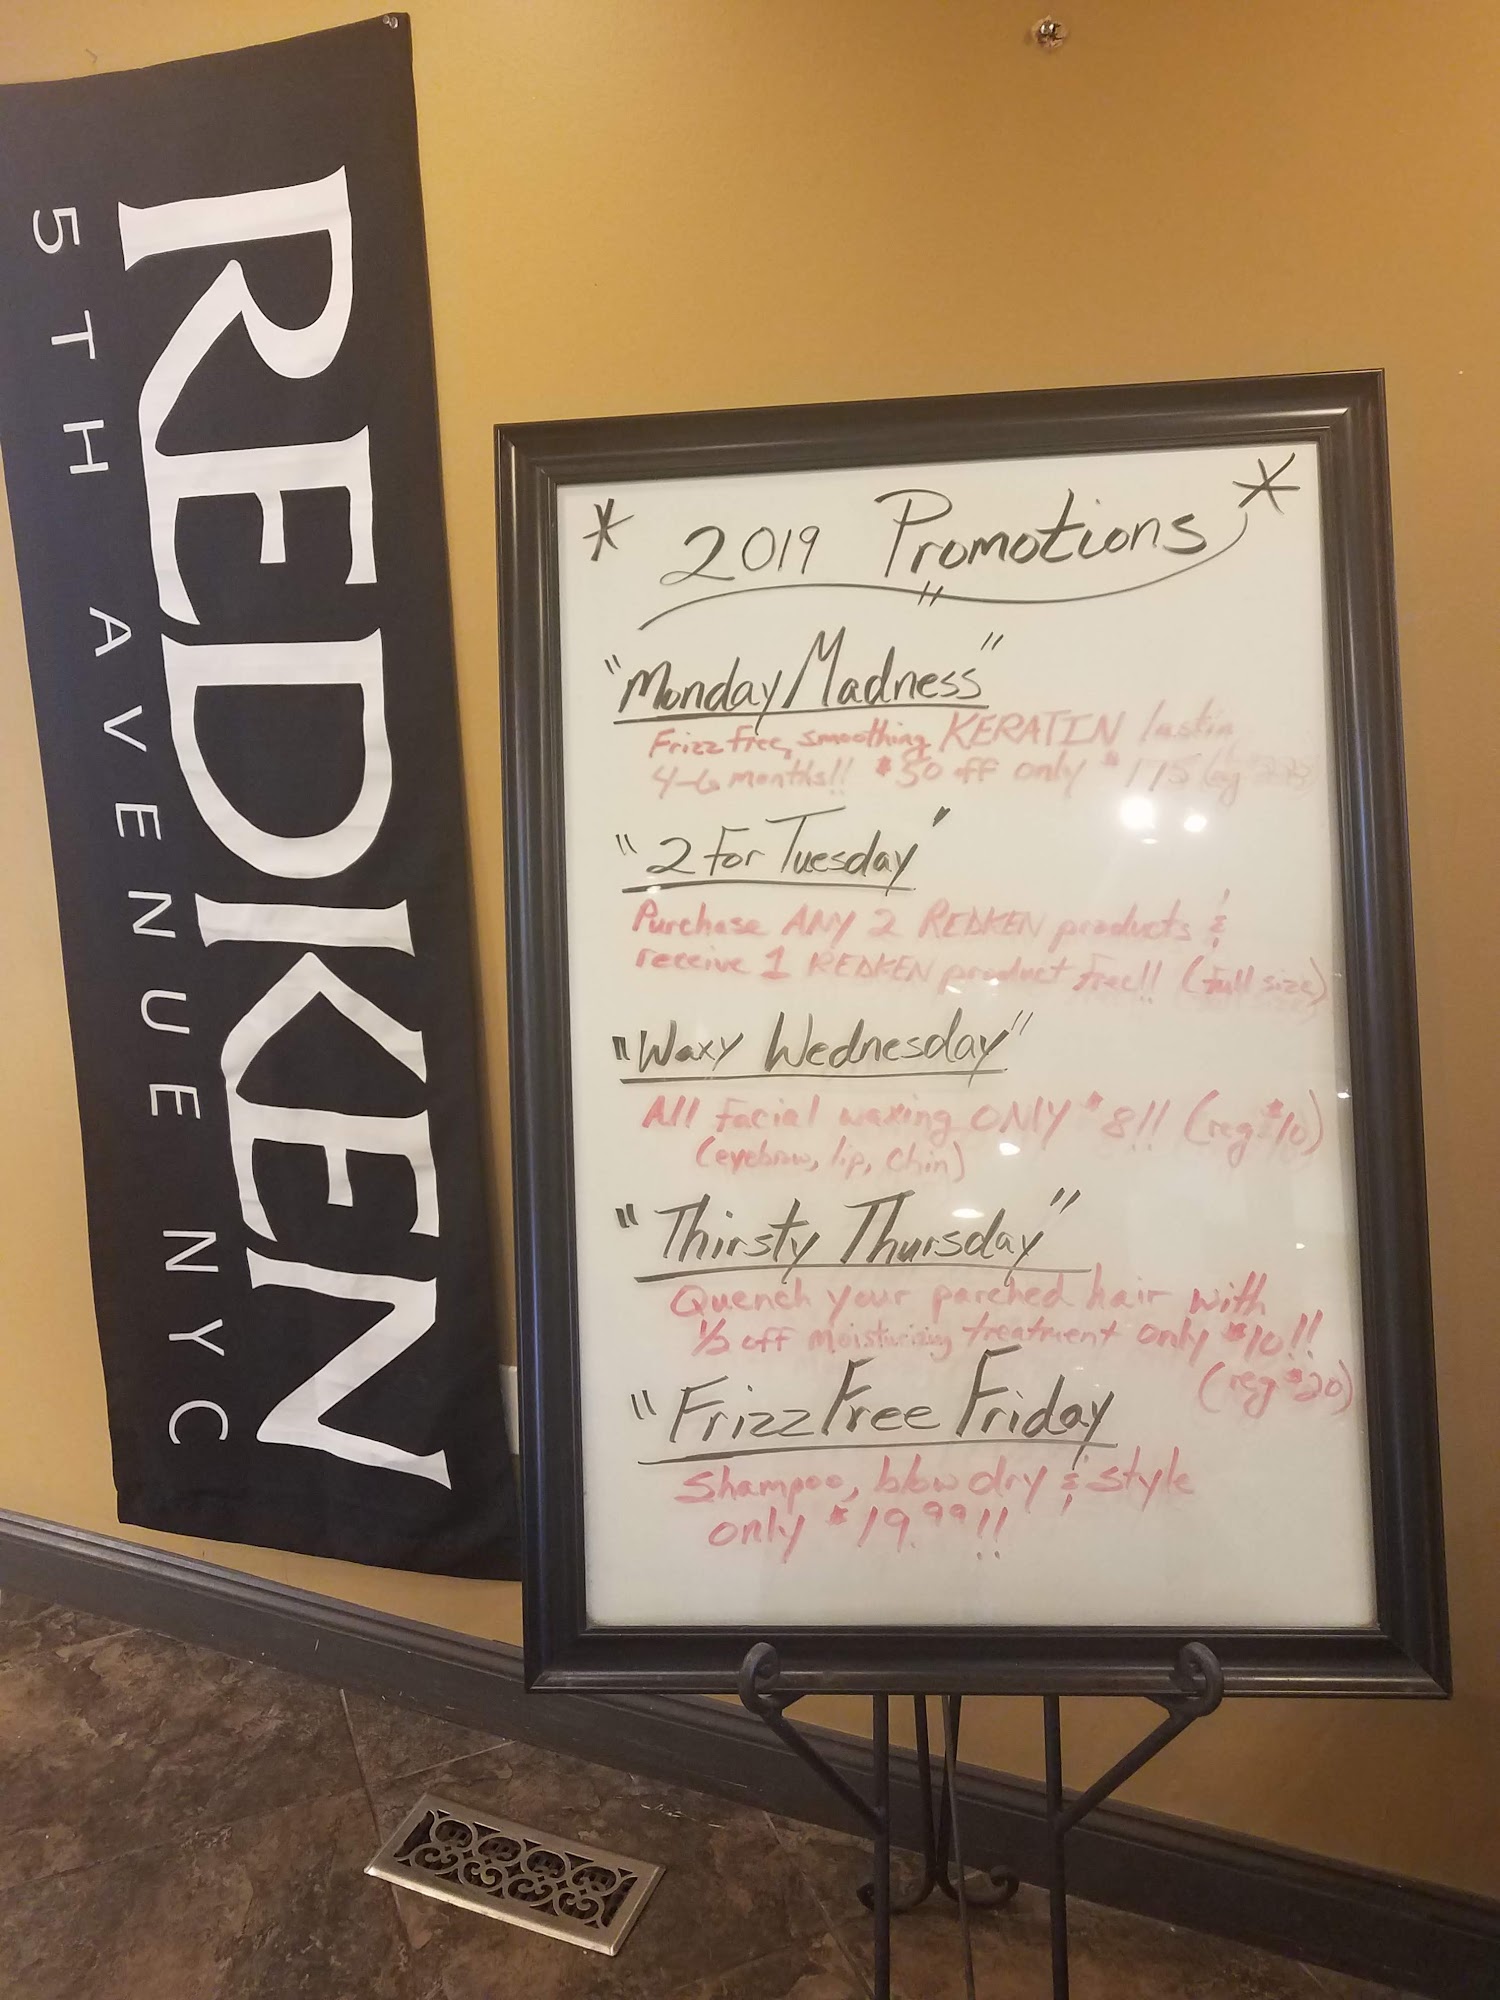 REDKEN
5TH AVENUE NYC
* 2019 Promotions *
"Monday Madness"
Frizz free, smoothing KERATIN lastin
4-6 months!! $50 off only $175 (reg
"2 For Tuesday"
Purchase ANY 2 REDKEN products &
receive 1 REDKEN product free!! (full size)
"Waxy Wednesday"
All facial waxing ONLY $8!! (reg $10)
(eyebrow, lip, chin)
"Thirsty Thursday"
Quench your parched hair with
1/2 off moisturizing treatment only $10!!
(reg $20)
"Frizz Free Friday
Shampoo, blow dry & style
only $19.99!!